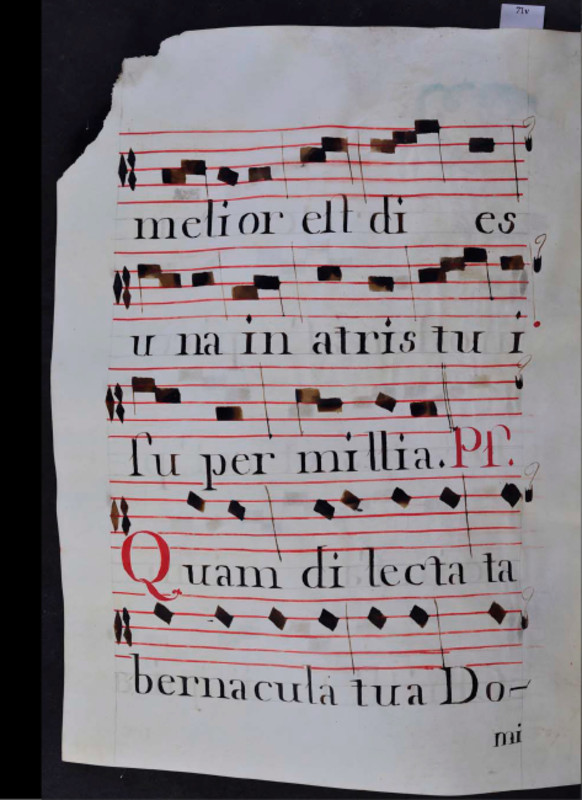 71v
melior est di es
u na in atris tu i
ſu per millia. Pſ.
Quam di lecta ta
bernacula tua Do-
mi